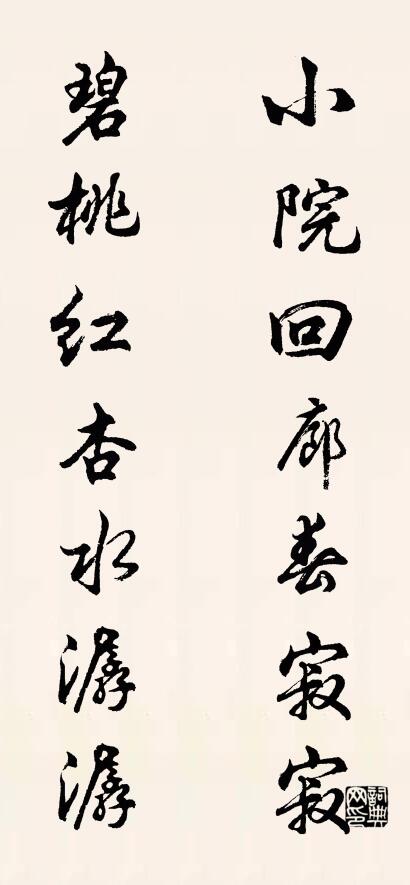 小院回廊春寂寂
碧桃红杏水潺潺
詞典网印